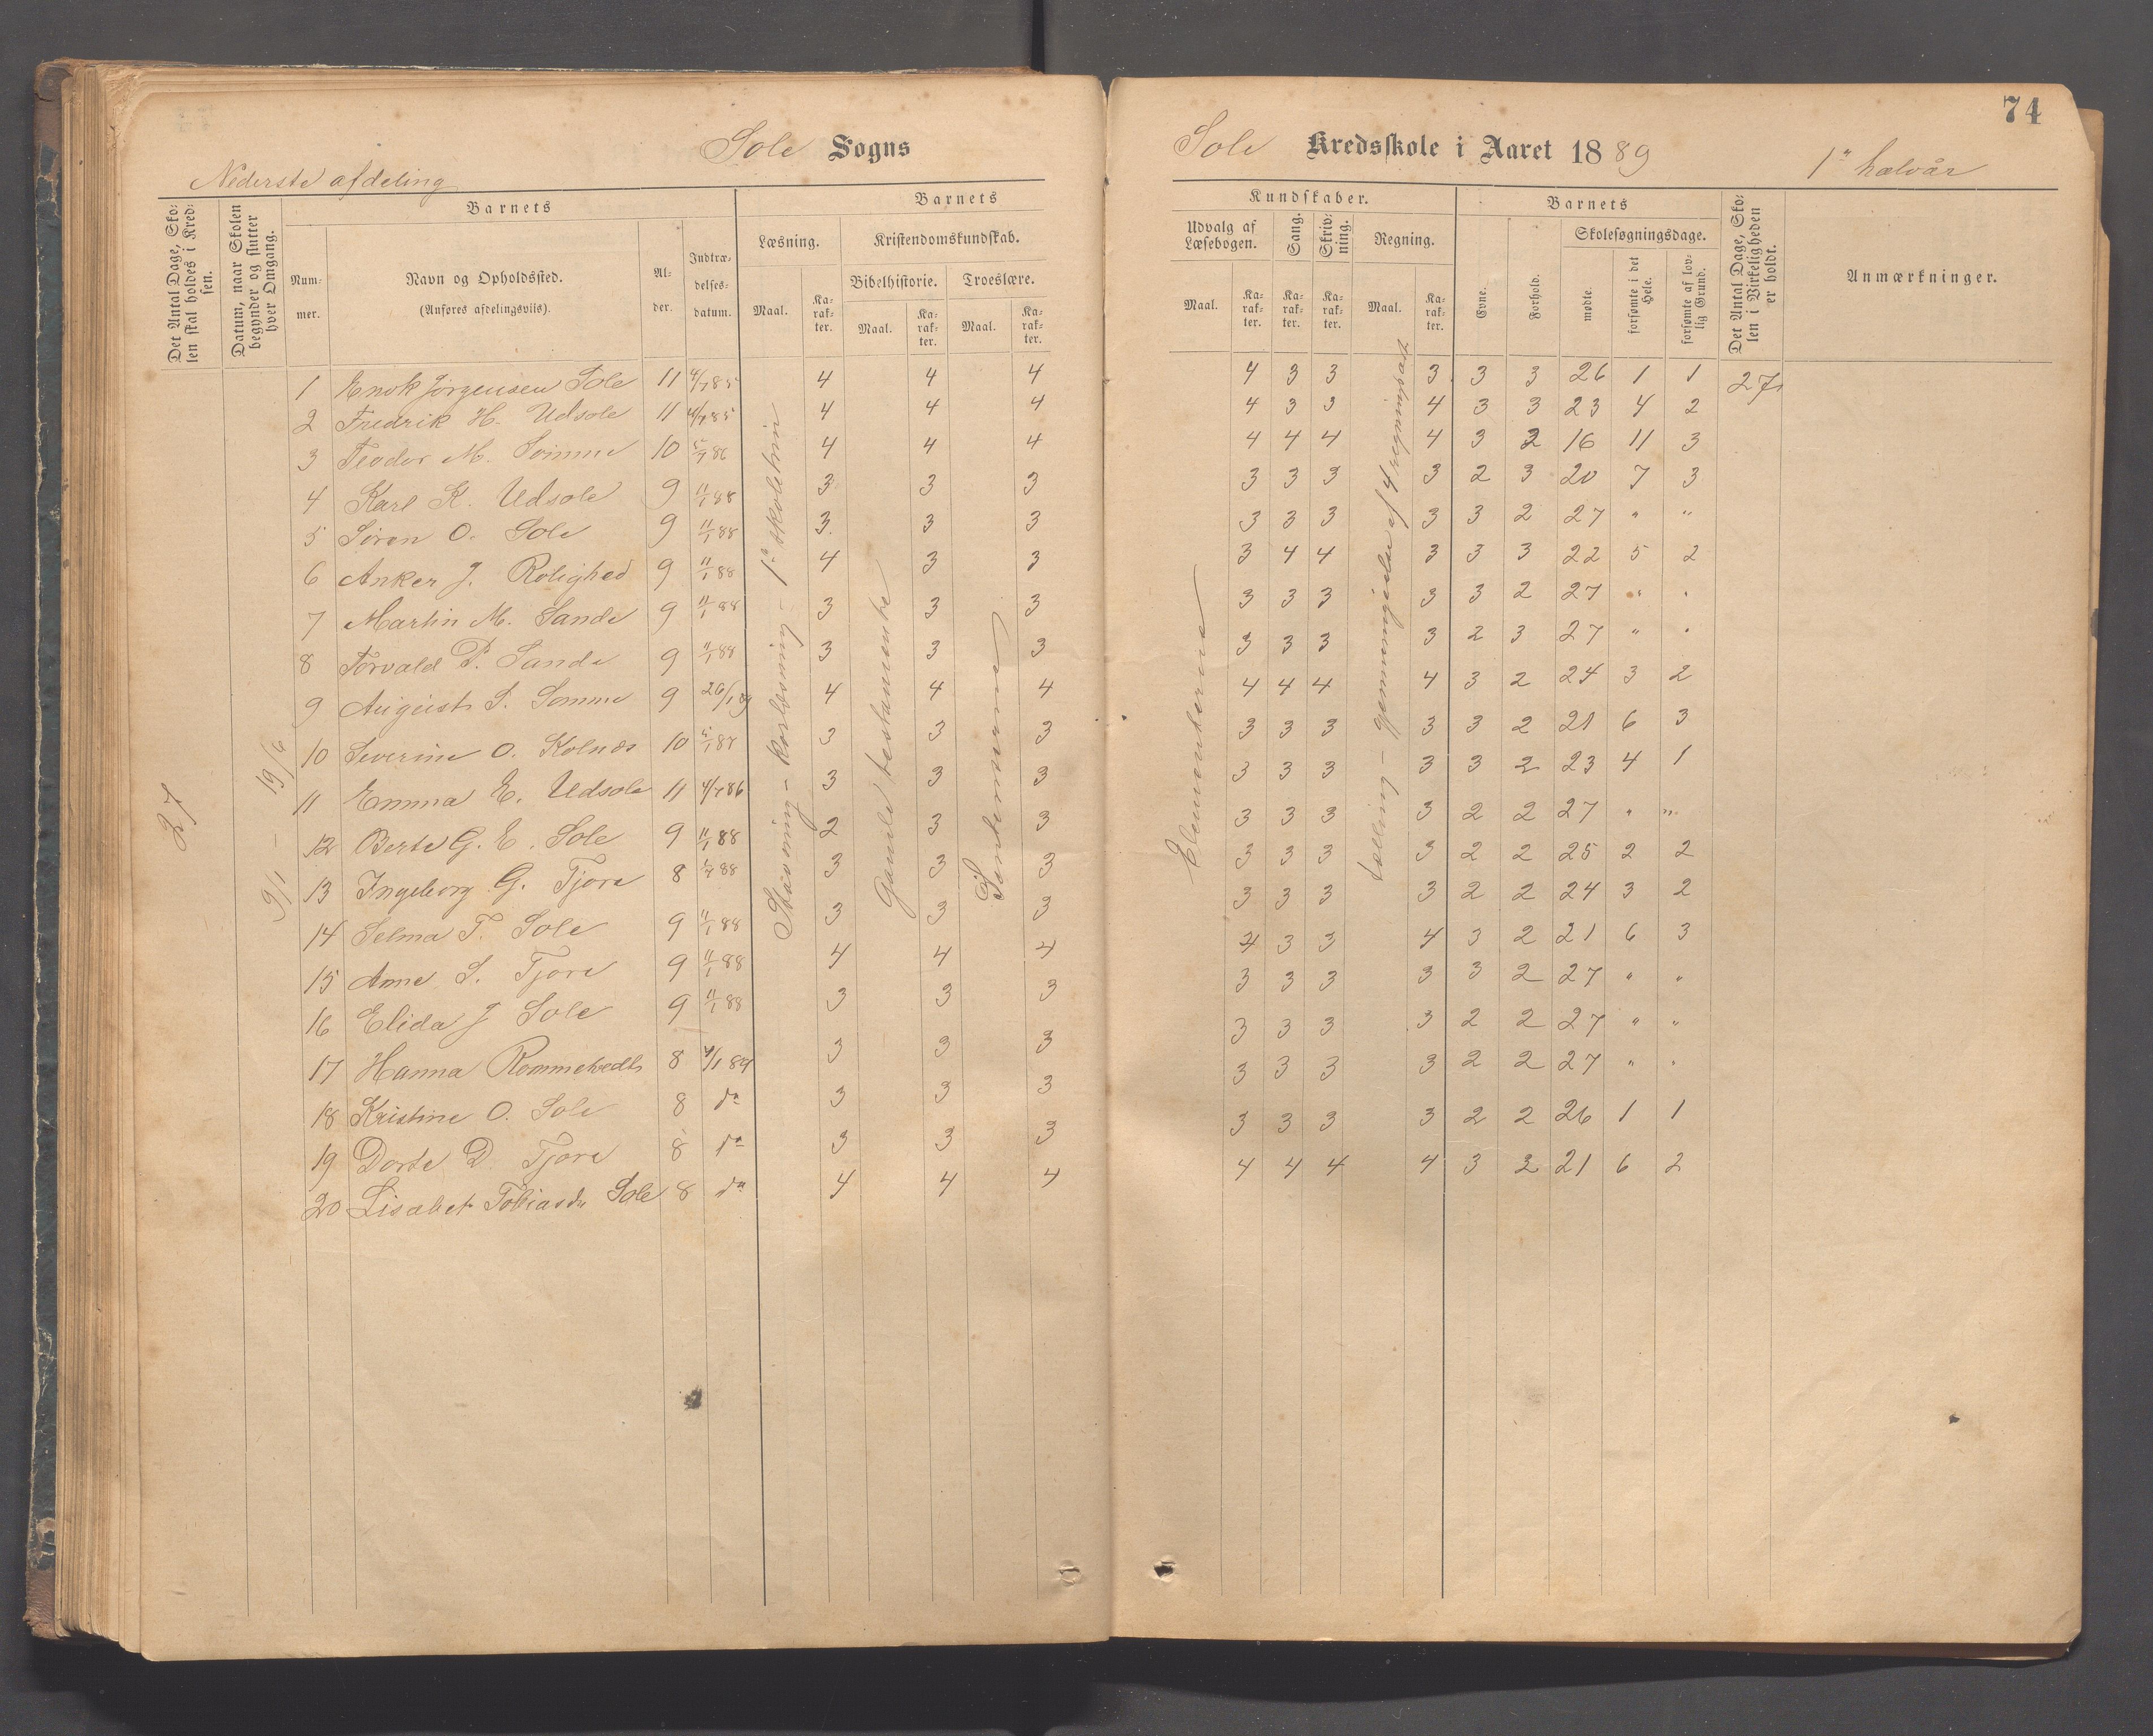 74
Sole Sogns
Sole Kredsskole i Aaret 1889
1ste halvår
Nederste afdeling
Det Antal Dage, Skolen skal holdes i Kredsen.
Datum, naar Skolen begynder og slutter hver Omgang.
Barnets
Nummer.
Navn og Opholdssted.
(Anføres afdelingsviis).
Alder.
Indtrædelsesdatum.
Barnets
Læsning.
Maal.
Karakter.
Kristendomskundskab.
Bibelhistorie.
Maal.
Karakter.
Troeslære.
Maal.
Karakter.
Kundskaber.
Udvalg af Læsebogen.
Maal.
Karakter.
Sang.
Karakter.
Skrivning.
Karakter.
Regning.
Maal.
Karakter.
Barnets
Evne.
Forhold.
Skolesøgningsdage.
mødte.
forsømte i det Hele.
forsømte af lovlig Grund.
Det Antal Dage, Skolen i Virkeligheden er holdt.
Anmærkninger.
27
9/1 - 19/6
Stavning - korlæsning -
Gamle testamente
Elementerne
tælling - af 4 regningsart
1 Enok Jørgensen Sole 11 4/7 85 4 4 4 4 3 3 3 3 3 26 1 1 27
2 Fredrik H. Udsole 11 4/7 85 4 4 4 4 3 3 4 3 3 23 4 2
3 Teodor M. Sømme 10 5/7 86 4 4 4 4 4 4 4 3 2 16 11 3
4 Karl K. Udsole 9 11/1 88 3 3 3 3 3 3 3 2 3 20 7 3
5 Søren O. Sole 9 11/1 88 3 3 3 3 3 3 3 3 2 27 " "
6 Anker J. Rolighed 9 11/1 88 4 3 3 3 4 4 3 3 3 22 5 2
7 Martin M. Sande 9 11/1 88 3 3 3 3 3 3 3 3 2 27 " "
8 Torvald P. Sande 9 11/1 88 3 3 3 3 3 3 3 2 3 27 " "
9 August S. Sømme 9 26/1 89 4 4 4 4 4 4 4 3 2 24 3 2
10 Severine O. Kolnæs 10 11/1 87 3 3 3 3 3 3 3 3 2 21 6 3
11 Emma E. Udsole 11 4/7 86 3 3 3 3 3 3 3 3 2 23 4 1
12 Berte G. E. Sole 9 11/1 88 2 3 3 3 3 3 3 2 2 27 " "
13 Ingeborg G. Tjora 8 88 3 3 3 3 3 3 3 2 2 25 2 2
14 Selma T. Sole 9 11/1 88 3 3 3 3 3 3 3 2 2 24 3 2
15 Anne S. Tjora 9 11/1 88 4 4 4 4 3 3 4 3 2 21 6 3
16 Elida J Sole 9 11/1 88 3 3 3 3 3 3 3 3 2 27 " "
17 Hanna Rommetvedt 8 9/1 89 3 3 3 3 3 3 3 2 2 27 " "
18 Kristine O. Sole 8 do 3 3 3 3 3 3 3 2 2 27 " "
19 Dorte D. Tjora 8 do 3 3 3 3 3 3 3 2 2 26 1 1
20 Lisabet Tobiasdr Sole 8 do 4 4 4 4 4 4 4 3 2 21 6 2